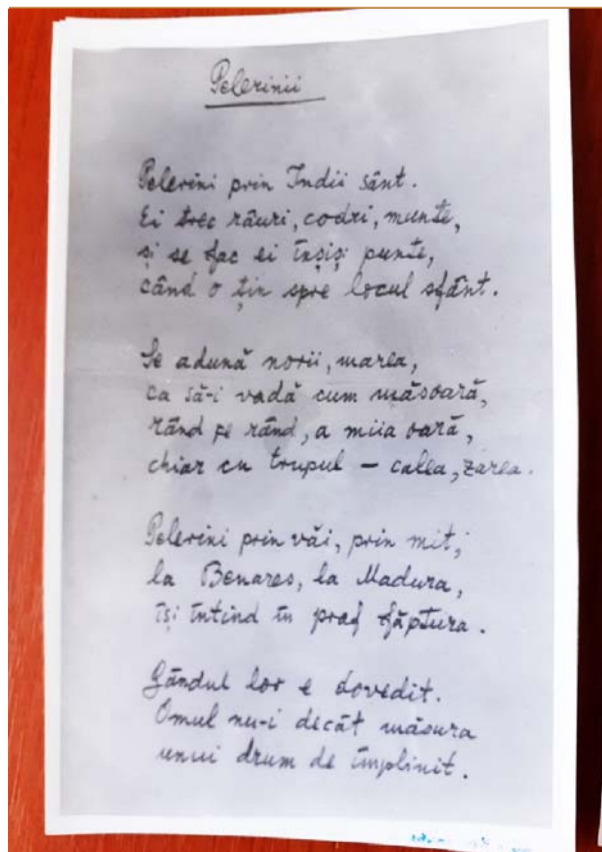 Pelerinii
Pelerini prin Indii sânt.
Ei trec râuri, codri, munte,
și se fac ei înșiși punte,
când o țin spre locul sfânt.
Se adună norii, marea,
ca să-i vadă cum măsoară,
rând pe rând, a miia oară,
chiar cu trupul – calea, zarea.
Pelerini prin văi, prin mit,
la Benares, la Madura,
își întind în praf făptura.
Gândul lor e dovedit.
Omul nu-i decât măsura
unui drum de împlinit.